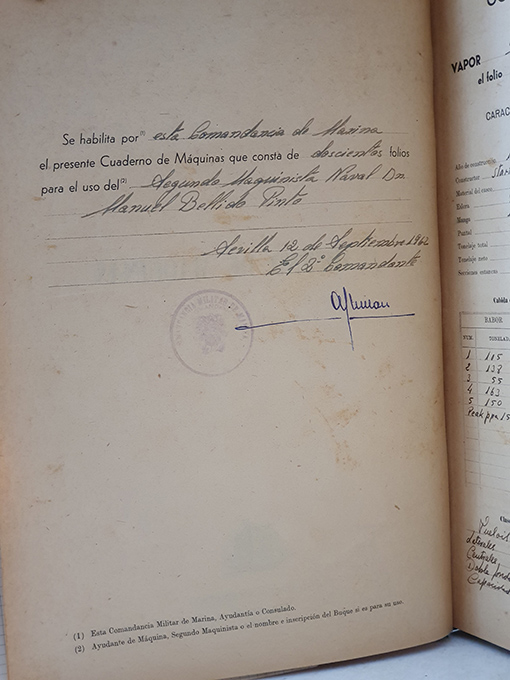 Se habilita por(1) esta Comandancia de Marina
el presente Cuaderno de Máquinas que consta de doscientos folios
para el uso del(2) Segundo Maquinista Naval Dn.
Manuel Bellido Pinto
Sevilla 12 de Septiembre 1962
El 2º Comandante
(1) Esta Comandancia Militar de Marina, Ayudantía o Consulado.
(2) Ayudante de Máquina, Segundo Maquinista o el nombre e inscripción del Buque si es para su uso.
VAPOR
el folio
CARAC
Año de construcción
Constructor
Material del casco
Eslora
Manga
Puntal
Tonelaje total
Tonelaje neto
Secciones estancas
Cabida
BABOR
NUM. TONELADA
1 115
2 138
3 55
4 163
5 150
Peak ppa 15
Laterales
Centrales